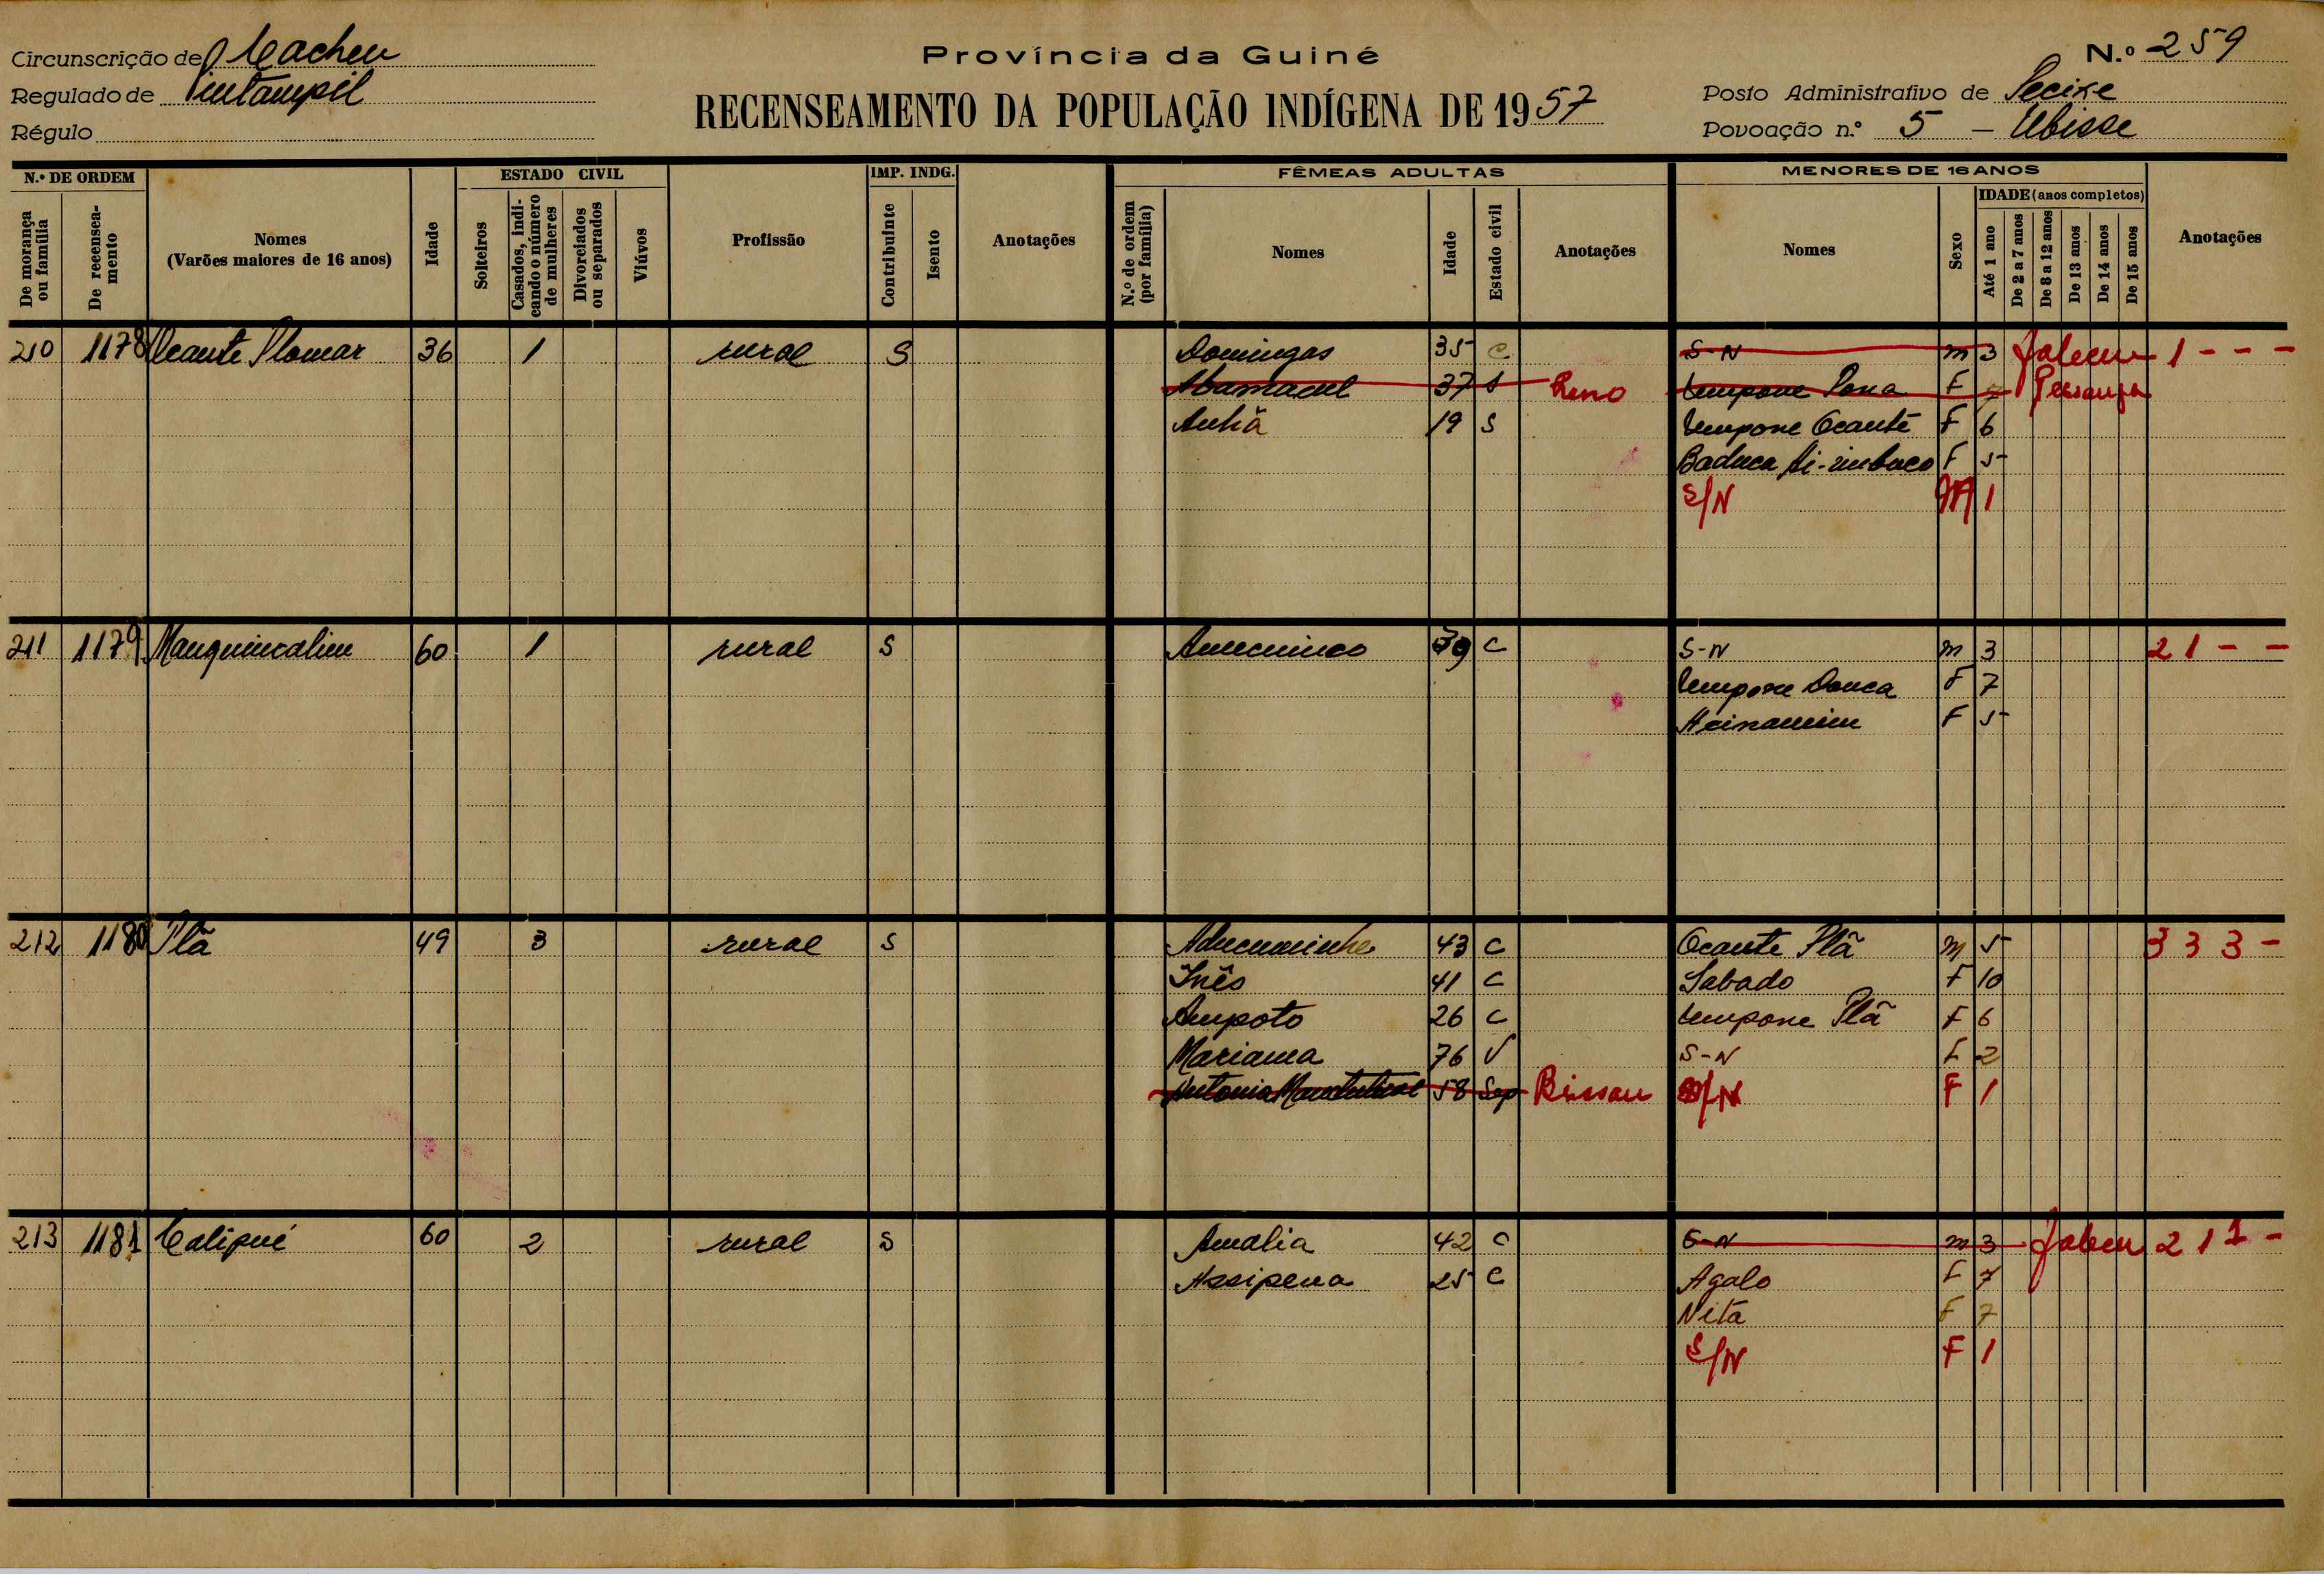 Circunscrição de Cacheu
Província da Guiné
N.º 259
Regulado de
Posto Administrativo de Pecixe
RECENSEAMENTO DA POPULAÇÃO INDÍGENA DE 1957
Régulo
Povoação n.º 5 –
N.º DE ORDEM
De morança ou família
De recenseamento
Nomes
(Varões maiores de 16 anos)
Idade
ESTADO CIVIL
Solteiros
Casados, indicando o número de mulheres
Divorciados ou separados
Viúvos
Profissão
IMP. INDG.
Contribuinte
Isento
Anotações
FÊMEAS ADULTAS
N.º de ordem (por família)
Nomes
Idade
Estado civil
Anotações
MENORES DE 16 ANOS
Nomes
Sexo
IDADE (anos completos)
Até 1 ano
De 2 a 7 anos
De 8 a 12 anos
De 13 anos
De 14 anos
De 15 anos
Anotações
210 1178 Ocante 36 1 rural S Domingas 35 C S-N m 3 Faleceu 1 - - -
37 S F
Anhã 19 S Ocante F 6
Baduca F 5
S/N M 1
211 1179 60 1 rural S 39 C S-N m 3 2 1 - -
F 7
F 5
212 1180 Plã 49 3 rural S 43 C Ocante Plã m 5 3 3 3 -
Inês 41 C Sabado F 10
Ampoto 26 C Plã F 6
Mariama 76 V S-N F 2
Antonia 58 Sep Bissau S/N F 1
213 1181 60 2 rural S Amalia 42 C S-N m 3 Faleceu 2 1 1 -
25 C Agalo F 7
Nitã F 7
S/N F 1